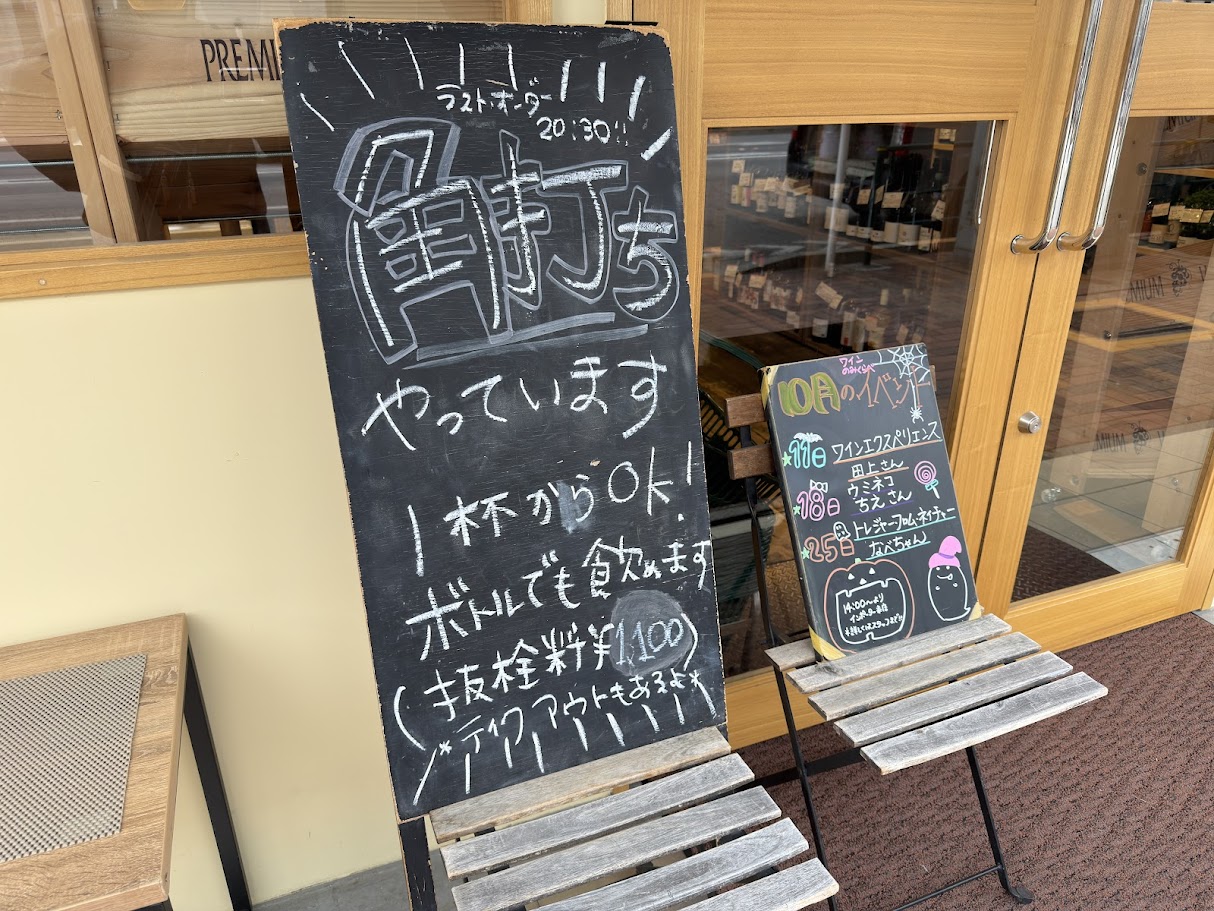 PREMI
ラストオーダー
20:30!!
角打ち
やっています
1杯からOK!
ボトルでも飲めます
(抜栓料¥1,100)
*テイクアウトもあるよ*
ワイン
のみくらべ
10月のイベント
11日 ワインエクスペリエンス
田上さん
18日 ウミネコ
ちえさん
25日 トレジャーフロムネイチャー
なべちゃん
14:00〜より
インポーター来店
MIUM
MIUM